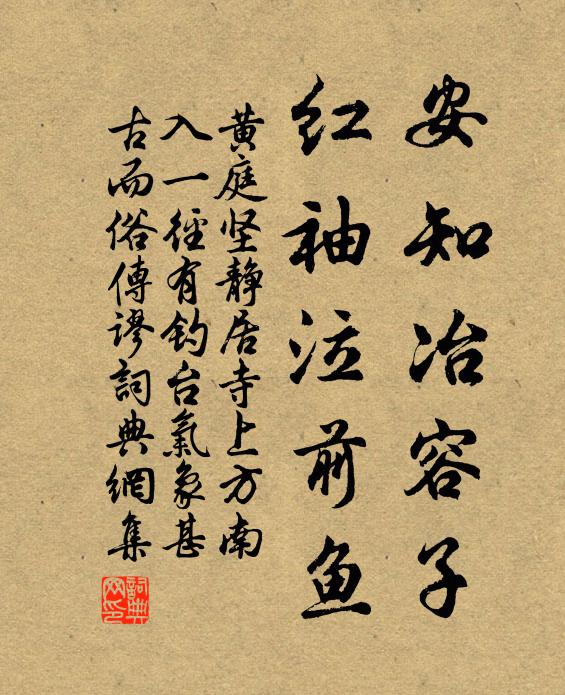 安知冶容子
红袖泣前鱼
黄庭坚静居寺上方南
入一径有钓台氣象甚
古而俗傳謬詞典網集
詞典网印